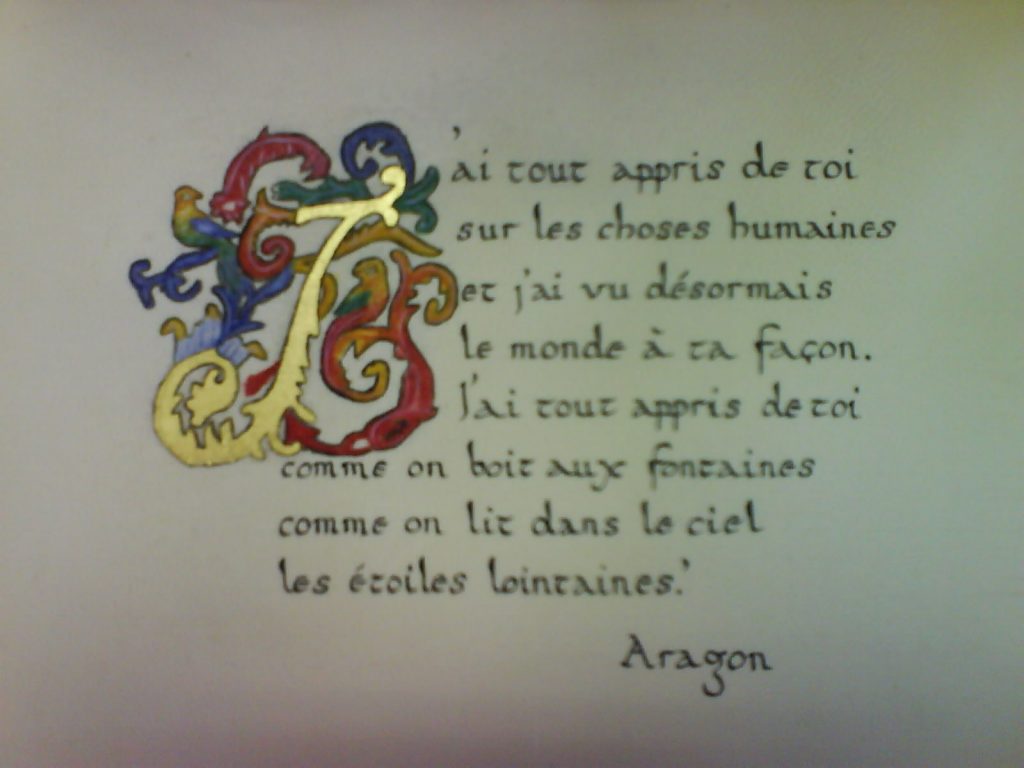 J'ai tout appris de toi
sur les choses humaines
et j'ai vu désormais
le monde à ta façon.
J'ai tout appris de toi
comme on boit aux fontaines
comme on lit dans le ciel
les étoiles lointaines.'
Aragon